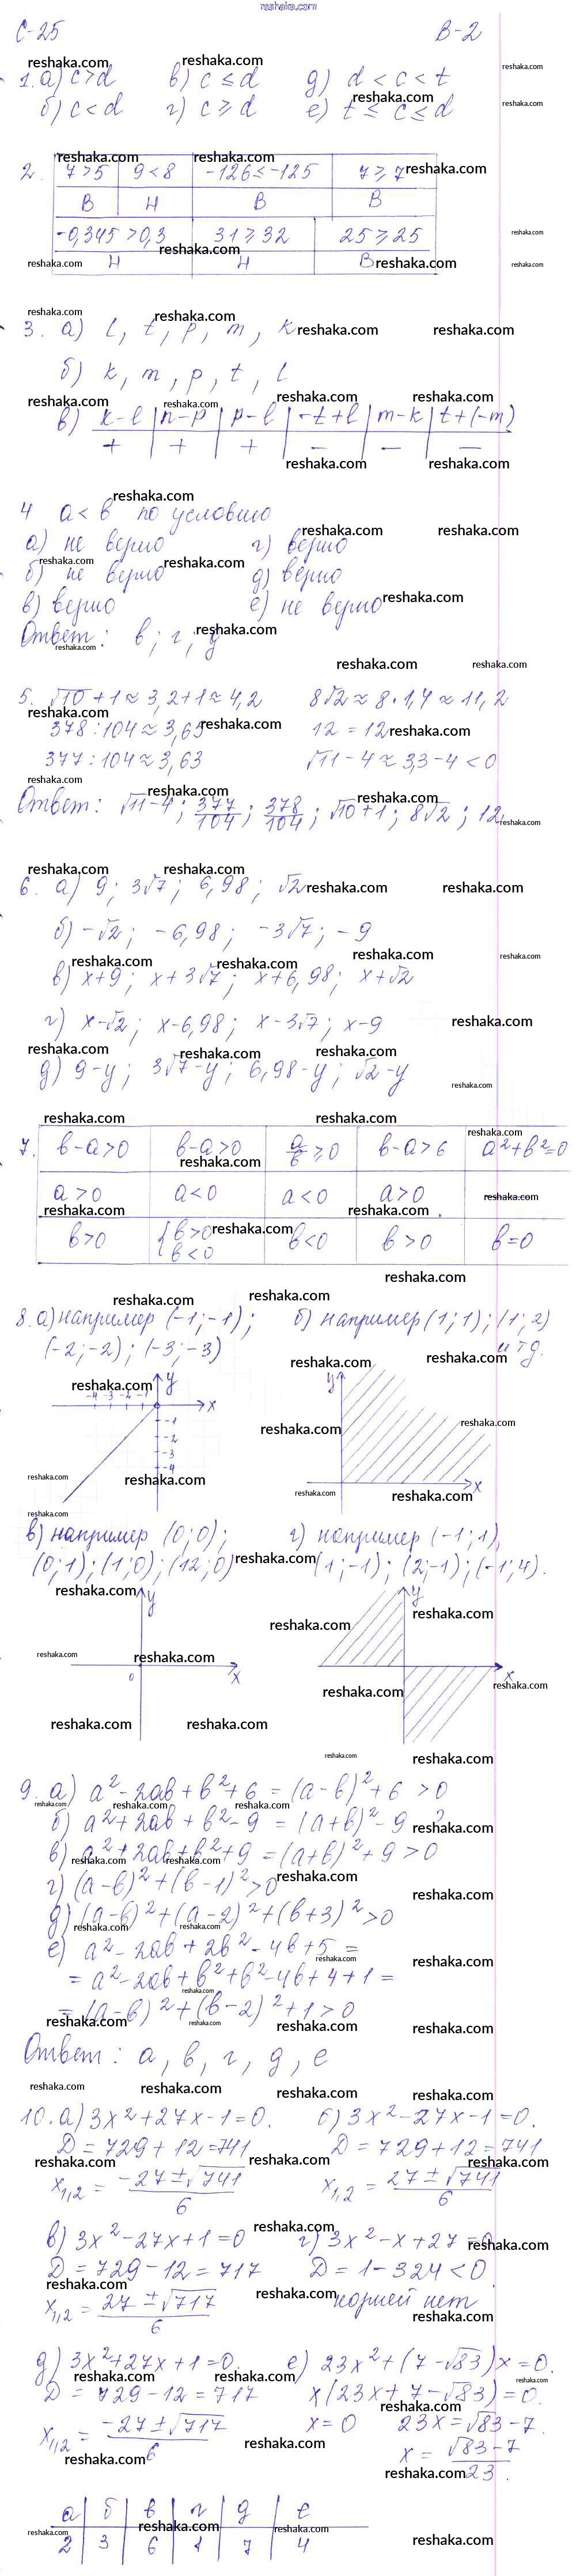 reshaka.com
С-25 В-2
1. а) c>d в) c ≤ d д) d < c < t
б) c < d г) c ≥ d е) t ≤ c ≤ d
2. 7>5 9<8 -126≤-125 7≥7
В Н В В
-0,345>0,3 31≥32 25≥25
Н Н В
3. а) l, t, p, m, k
б) k, m, p, t, l
в) k-l n-p p-l -t+l m-k t+(-m)
+ + + - - -
4 a<b по условию
а) не верно г) верно
б) не верно д) верно
в) верно е) не верно
Ответ: в; г; д
5. √10+1≈3,2+1≈4,2 8√2≈8·1,4≈11,2
378:104≈3,65 12=12
377:104≈3,63 √11-4≈3,3-4<0
Ответ: √11-4; 377/104; 378/104; √10+1; 8√2; 12
6. а) 9; 3√7; 6,98; √2
б) -√2; -6,98; -3√7; -9
в) x+9; x+3√7; x+6,98; x+√2
г) x-√2; x-6,98; x-3√7; x-9
д) 9-y; 3√7-y; 6,98-y; √2-y
7. b-a>0 b-a>0 a/b≥0 b-a>6 a²+b²=0
a>0 a<0 a<0 a>0
b>0 {b>0 b<0 b<0 b>0 b=0
8. а) например (-1;-1); б) например (1;1); (1;2)
(-2;-2); (-3;-3) и тд.
y y
-4 -3 -2 -1 x
-1
-2
-3
-4 x
в) например (0;0); г) например (-1;1),
(0;1); (1;0); (12;0) (1;-1); (2;-1); (-1;4).
y y
0 x x
9. а) a²-2ab+b²+6=(a-b)²+6>0
б) a²+2ab+b²-9=(a+b)²-9 ?
в) a²+2ab+b²+9=(a+b)²+9>0
г) (a-b)²+(b-1)²>0
д) (a-b)²+(a-2)²+(b+3)²>0
е) a²-2ab+2b²-4b+5=
=a²-2ab+b²+b²-4b+4+1=
=(a-b)²+(b-2)²+1>0
Ответ: а, в, г, д, е
10. а) 3x²+27x-1=0. б) 3x²-27x-1=0.
D=729+12=741 D=729+12=741
x₁,₂ = (-27±√741)/6 x₁,₂ = (27±√741)/6
в) 3x²-27x+1=0 г) 3x²-x+27=0
D=729-12=717 D=1-324<0
x₁,₂ = (27±√717)/6 корней нет
д) 3x²+27x+1=0. е) 23x²+(7-√83)x=0.
D=729-12=717 x(23x+7-√83)=0.
x₁,₂ = (-27±√717)/6 x=0 23x=√83-7.
x = (√83-7)/23.
а б в г д е
2 3 6 1 7 4